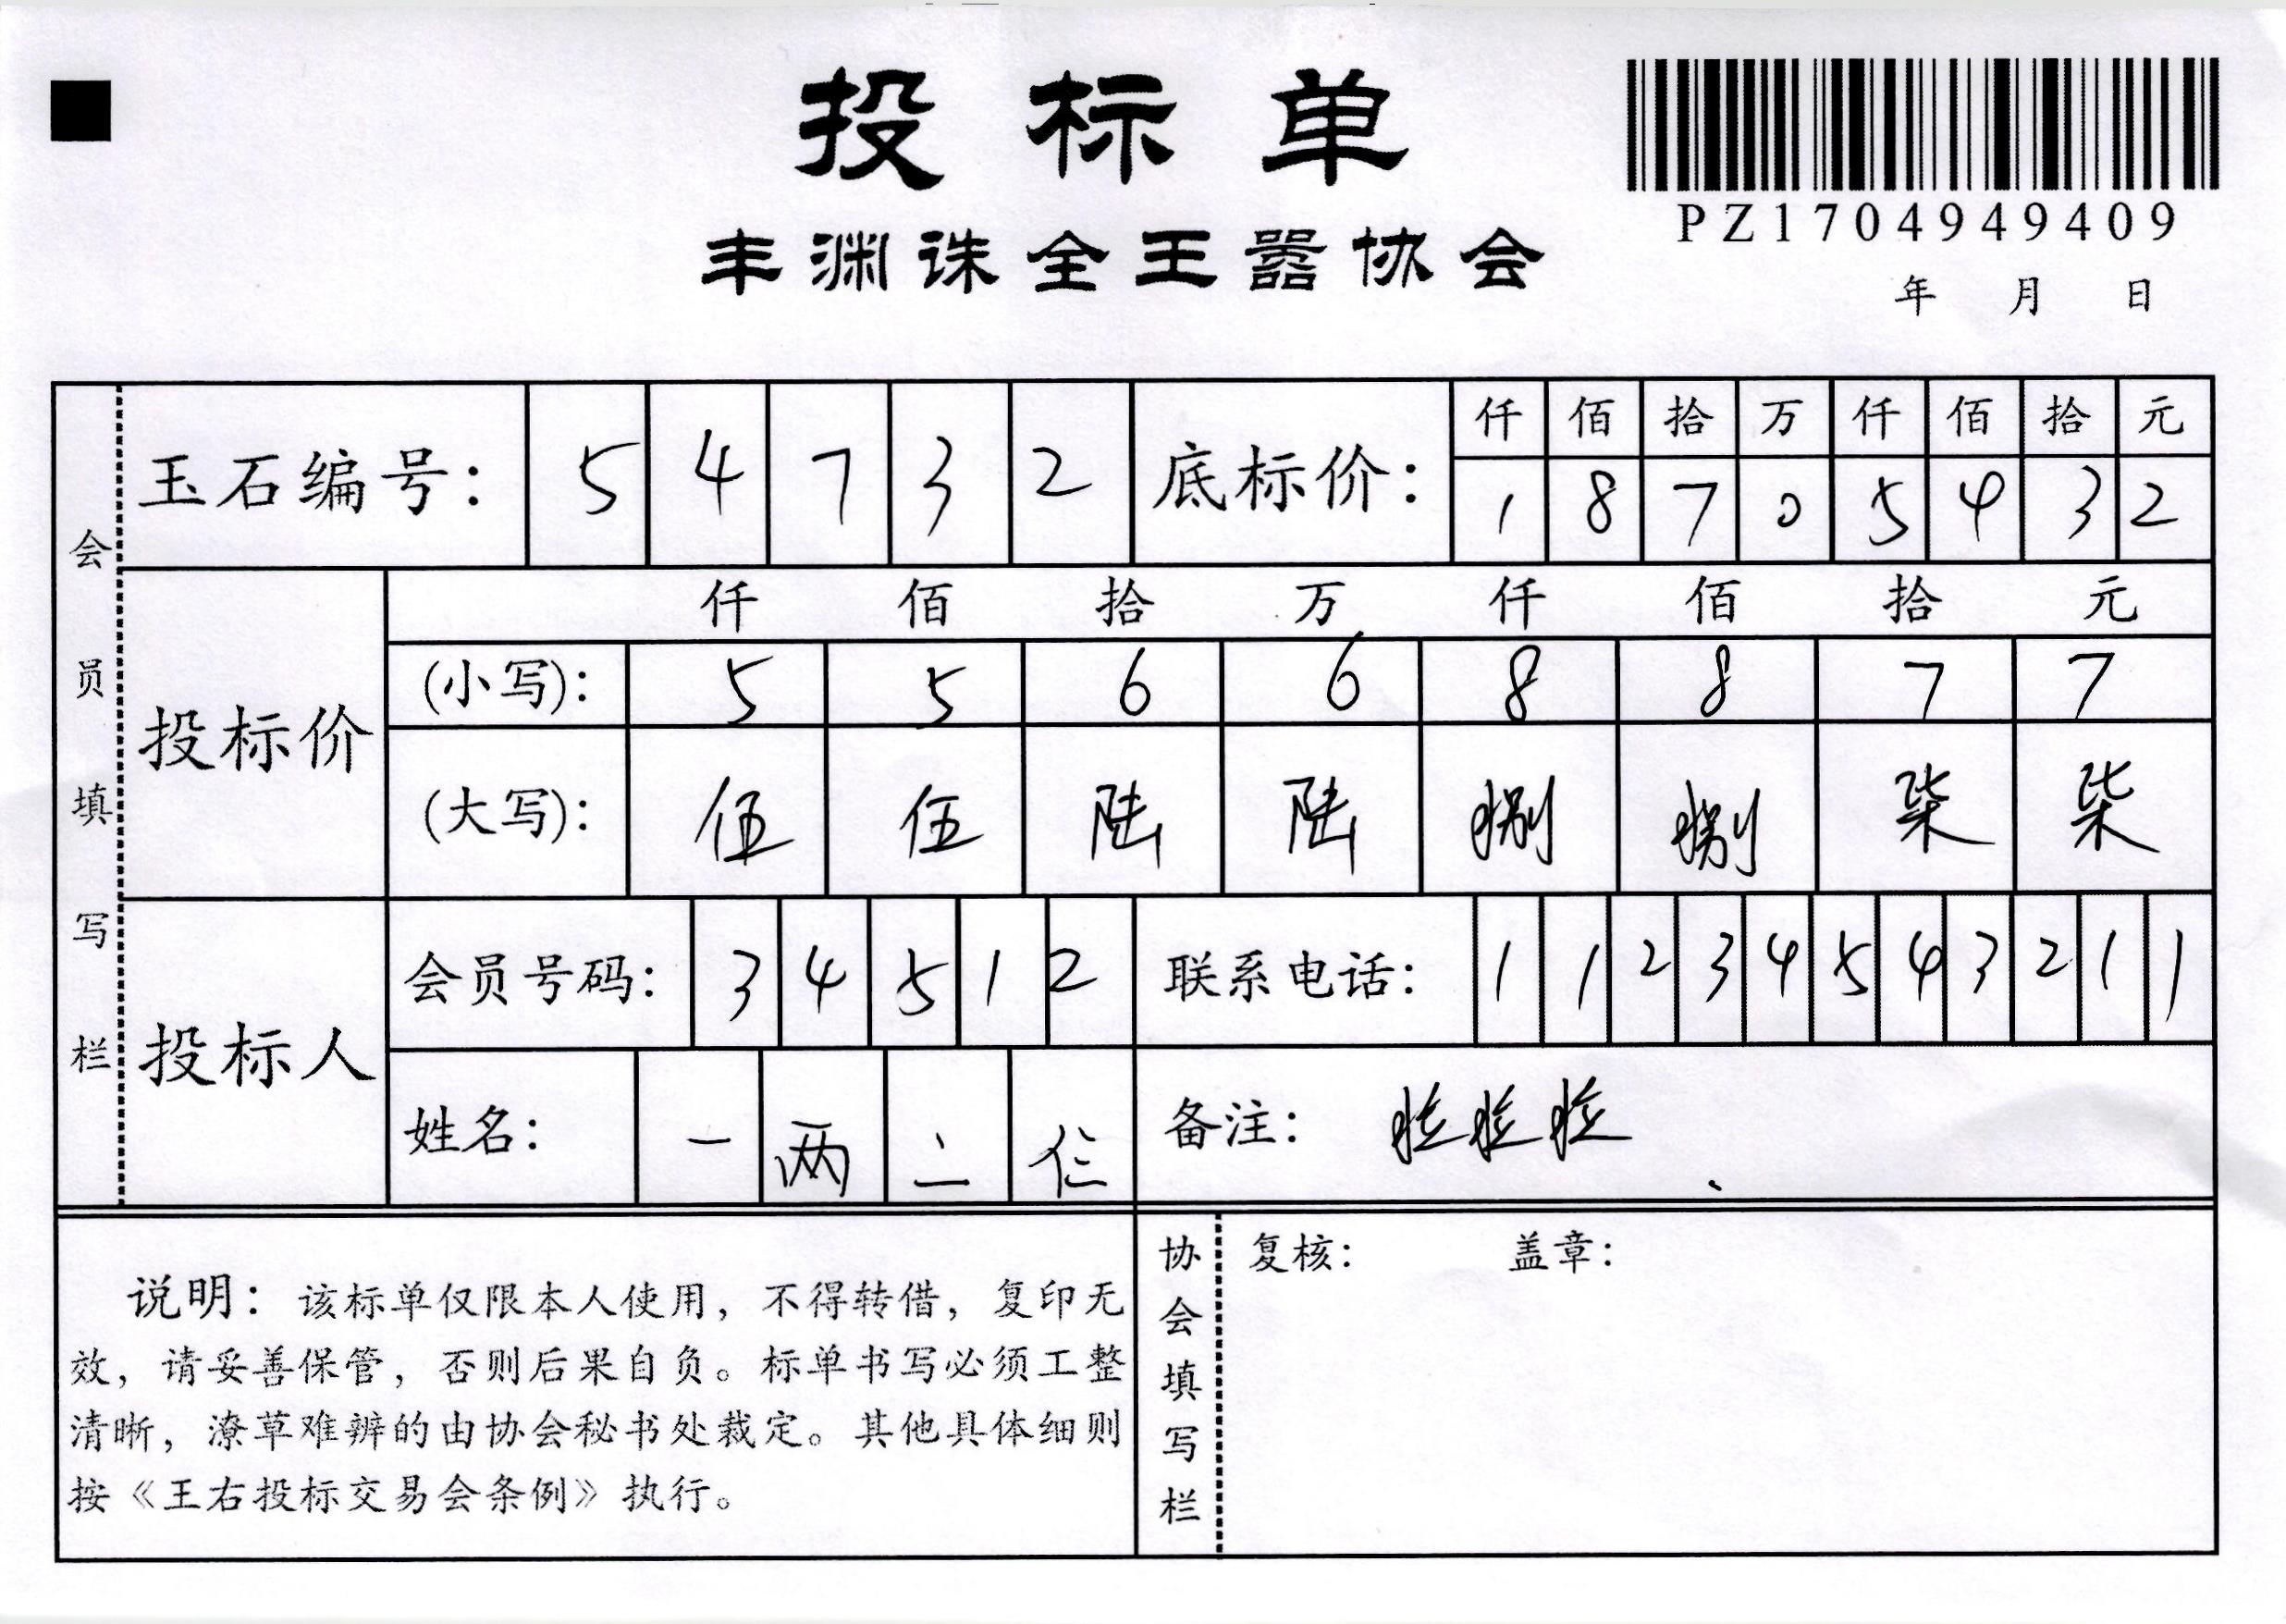 投标单
丰渊诛全王嚣协会
PZ1704949409
年 月 日
会员填写栏
玉石编号： 5 4 7 3 2
底标价： 仟 佰 拾 万 仟 佰 拾 元
1 8 7 0 5 4 3 2
投标价
仟 佰 拾 万 仟 佰 拾 元
(小写)： 5 5 6 6 8 8 7 7
(大写)： 伍 伍 陆 陆 捌 捌 柒 柒
投标人
会员号码： 3 4 5 1 2
联系电话： 1 1 2 3 4 5 4 3 2 1 1
姓名： 一 两 二 仨
备注：
说明：该标单仅限本人使用，不得转借，复印无
效，请妥善保管，否则后果自负。标单书写必须工整
清晰，潦草难辨的由协会秘书处裁定。其他具体细则
按《王右投标交易会条例》执行。
协会填写栏
复核： 盖章：